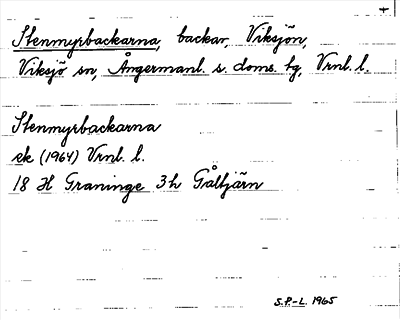 Stenmyrbackarna, backar, Viksjön,
Viksjö sn, Ångermanl. s. doms. tg, Vrnl. l.
Stenmyrbackarna
ek (1964) Vrnl. l.
18 H Graninge 3h Gåltjärn
S.P.-L. 1965